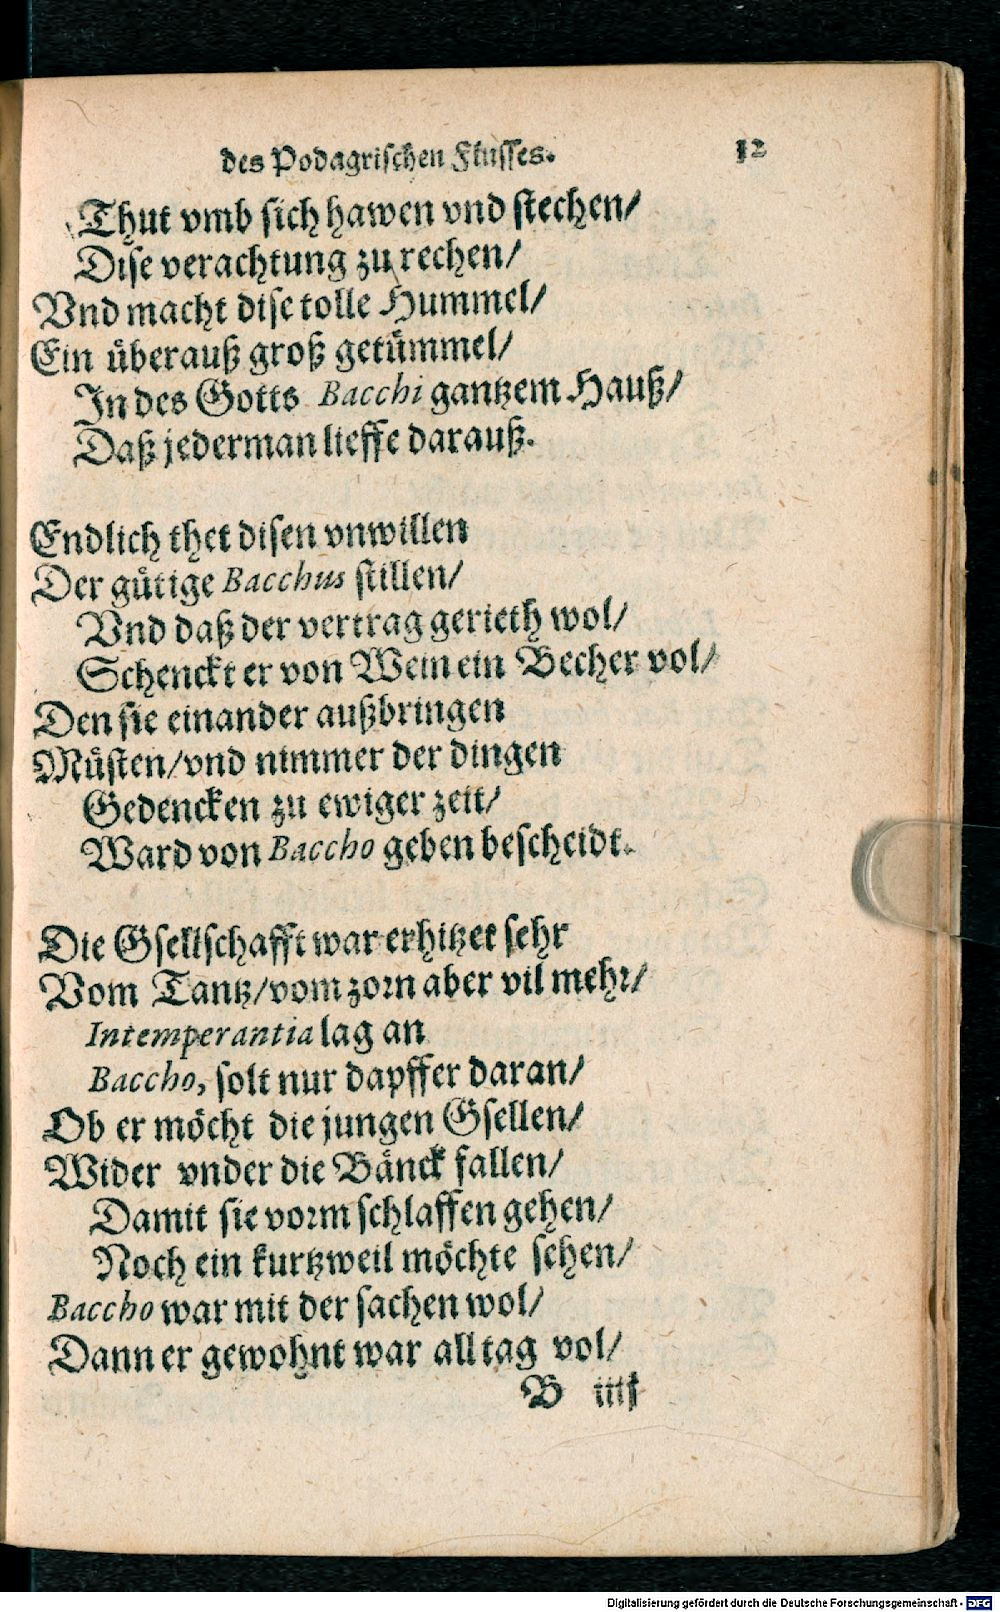 des Podagrischen Flusses. 12
Thut vmb sich hawen vnd stechen/
Dise verachtung zu rechen/
Vnd macht dise tolle Hummel/
Ein überauß groß getümmel/
In des Gotts Bacchi gantzem Hauß/
Daß jederman lieffe darauß.
Endlich thet disen vnwillen
Der gütige Bacchus stillen/
Vnd daß der vertrag gerieth wol/
Schenckt er von Wein ein Becher vol/
Den sie einander außbringen
Müsten/vnd nimmer der dingen
Gedencken zu ewiger zeit/
Ward von Baccho geben bescheidt.
Die Gsellschafft war erhitzet sehr
Vom Tantz/vom zorn aber vil mehr/
Intemperantia lag an
Baccho, solt nur dapffer daran/
Ob er möcht die jungen Gsellen/
Wider vnder die Bänck fallen/
Damit sie vorm schlaffen gehen/
Noch ein kurtzweil möchte sehen/
Baccho war mit der sachen wol/
Dann er gewohnt war all tag vol/
B iiij
Digitalisierung gefördert durch die Deutsche Forschungsgemeinschaft - DFG